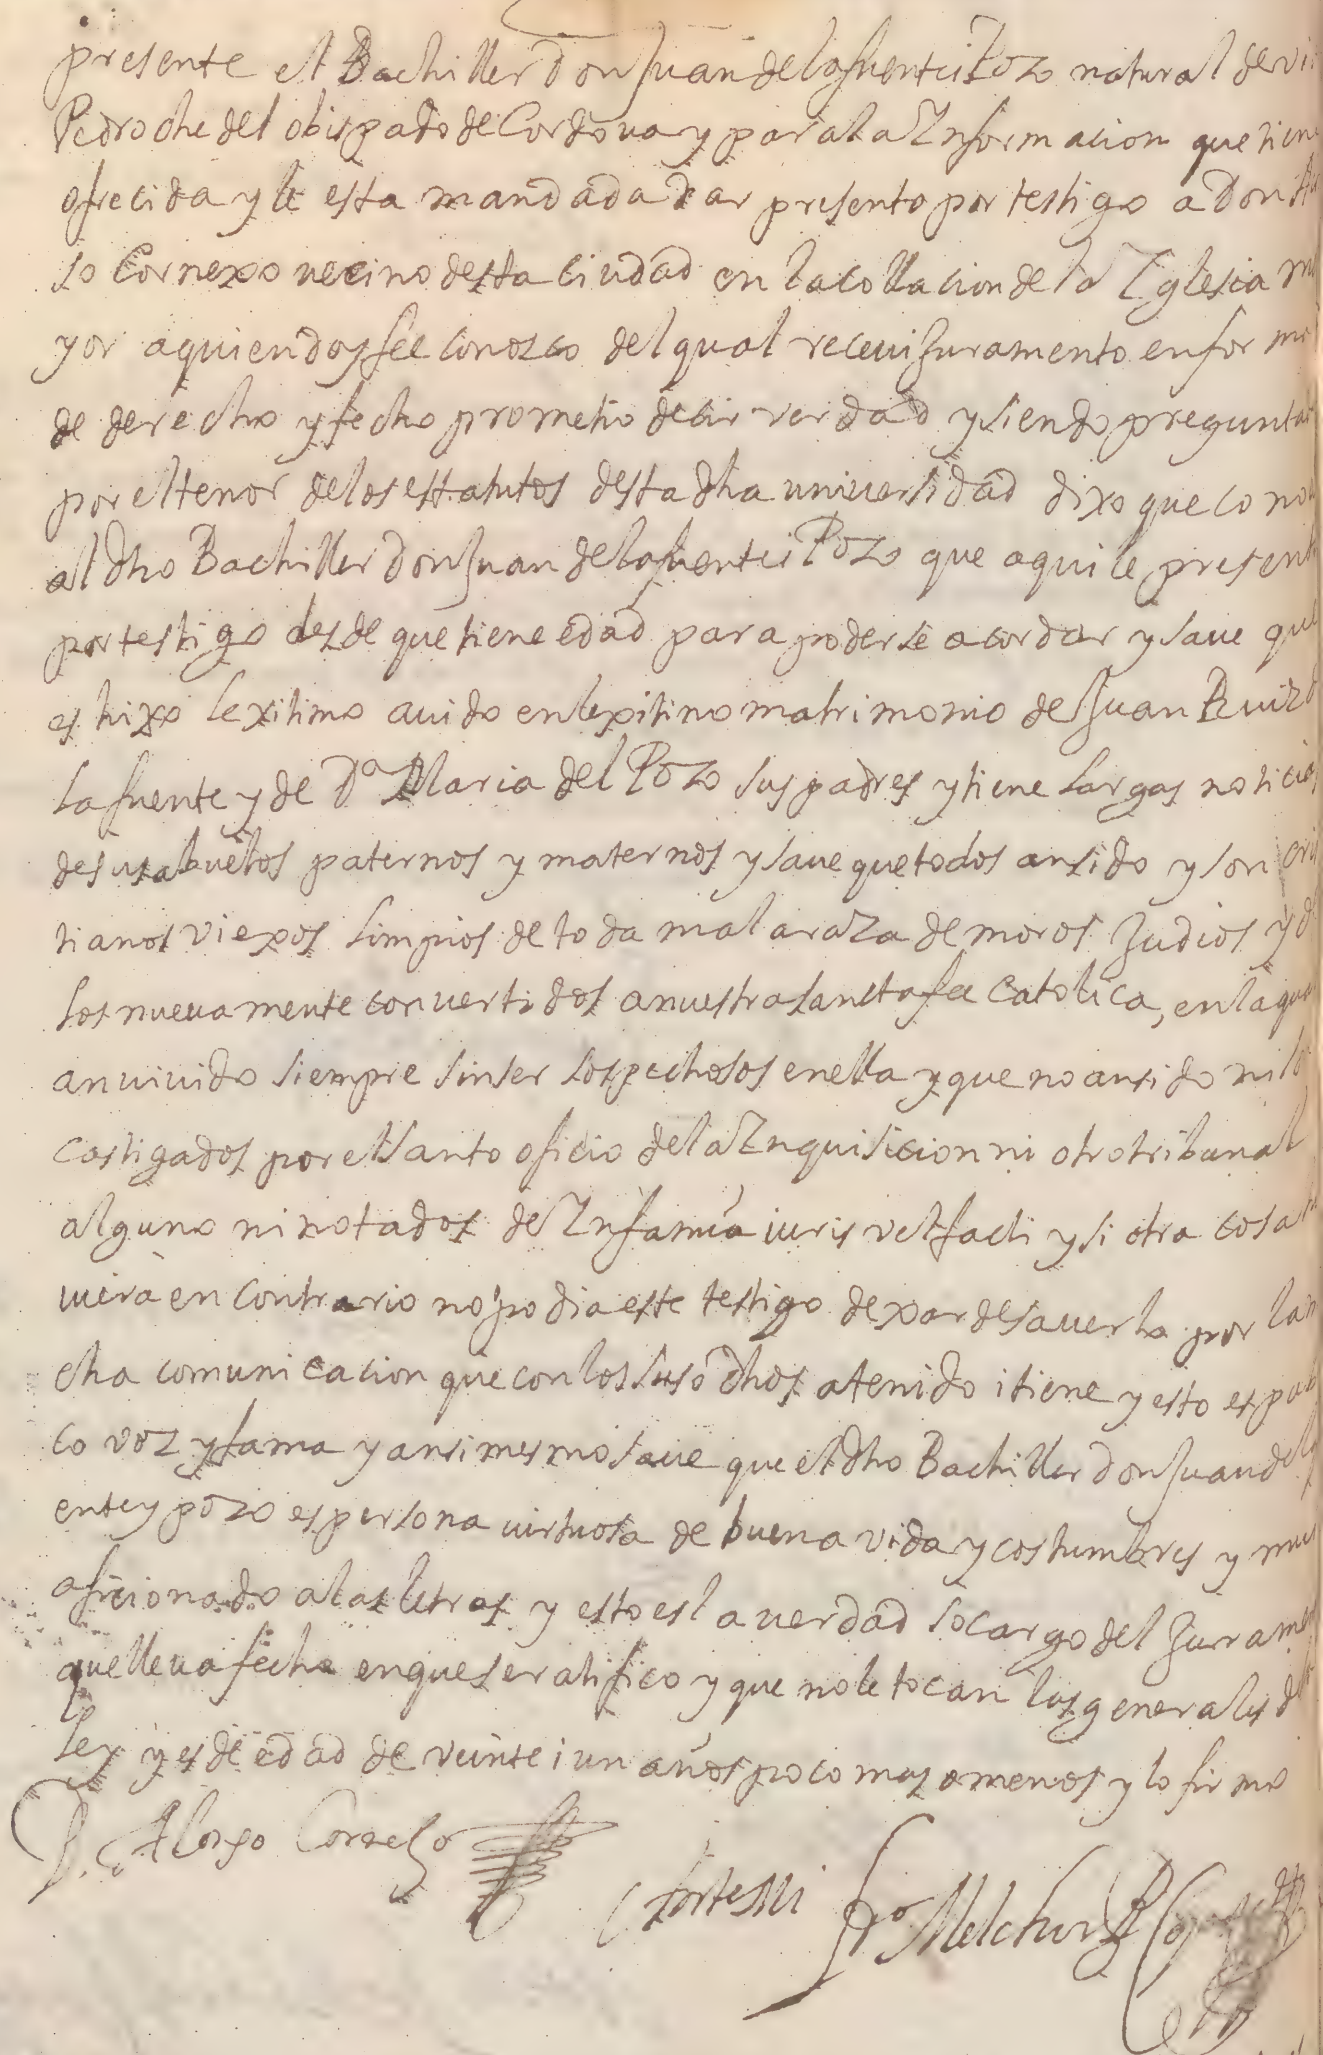 presente el Bachiller Don Juan de la fuente i Pozo natural de vi
Pedroche del obispado de Cordova y para la Informacion que tiene
ofrecida y le esta mandada dar presento por testigo a Don Al
so Cornexo vecino desta ciudad en la collacion de la Iglesia ma
yor a quien doy fee conosco del qual recevi Juramento en forma
de derecho y fecho prometio decir verdad y siendo preguntado
por el tenor de los estatutos desta dha universidad dixo que cono
al dho Bachiller Don Juan de la fuente i Pozo que aqui le presenta
por testigo desde que tiene edad para poderse acordar y save que
es hixo lexitimo avido en lexitimo matrimonio de Juan Ruiz d
la fuente y de Da Maria del Pozo sus padres y tiene largas noticias
de sus abuelos paternos y maternos y save que todos an sido y son cris
tianos viexos limpios de toda mala raza de moros Judios y de
los nuevamente convertidos a nuestra sancta fee Catolica, en la qual
an vivido siempre sin ser sospechosos en ella y que no an sido ni so
castigados por el Santo oficio de la Inquisicion ni otro tribunal
alguno ni notados de Infamia iuris vel facti y si otra cosa hu
viera en contrario no podia este testigo dexar de saverla por la mu
cha comunicacion que con los suso dhos a tenido i tiene y esto es publi
co voz y fama y ansimesmo save que el dho Bachiller don Juan de la fu
ente y pozo es persona virtuosa de buena vida y costumbres y mui
aficionado a las letras y esto es la verdad so cargo del Juramento
que lleva fecho en que se ratifico y que no le tocan las generales de la
ley y es de edad de veinte i un años poco mas o menos y lo firmo
D. Alonso Cornejo
Ante mi
Melchor